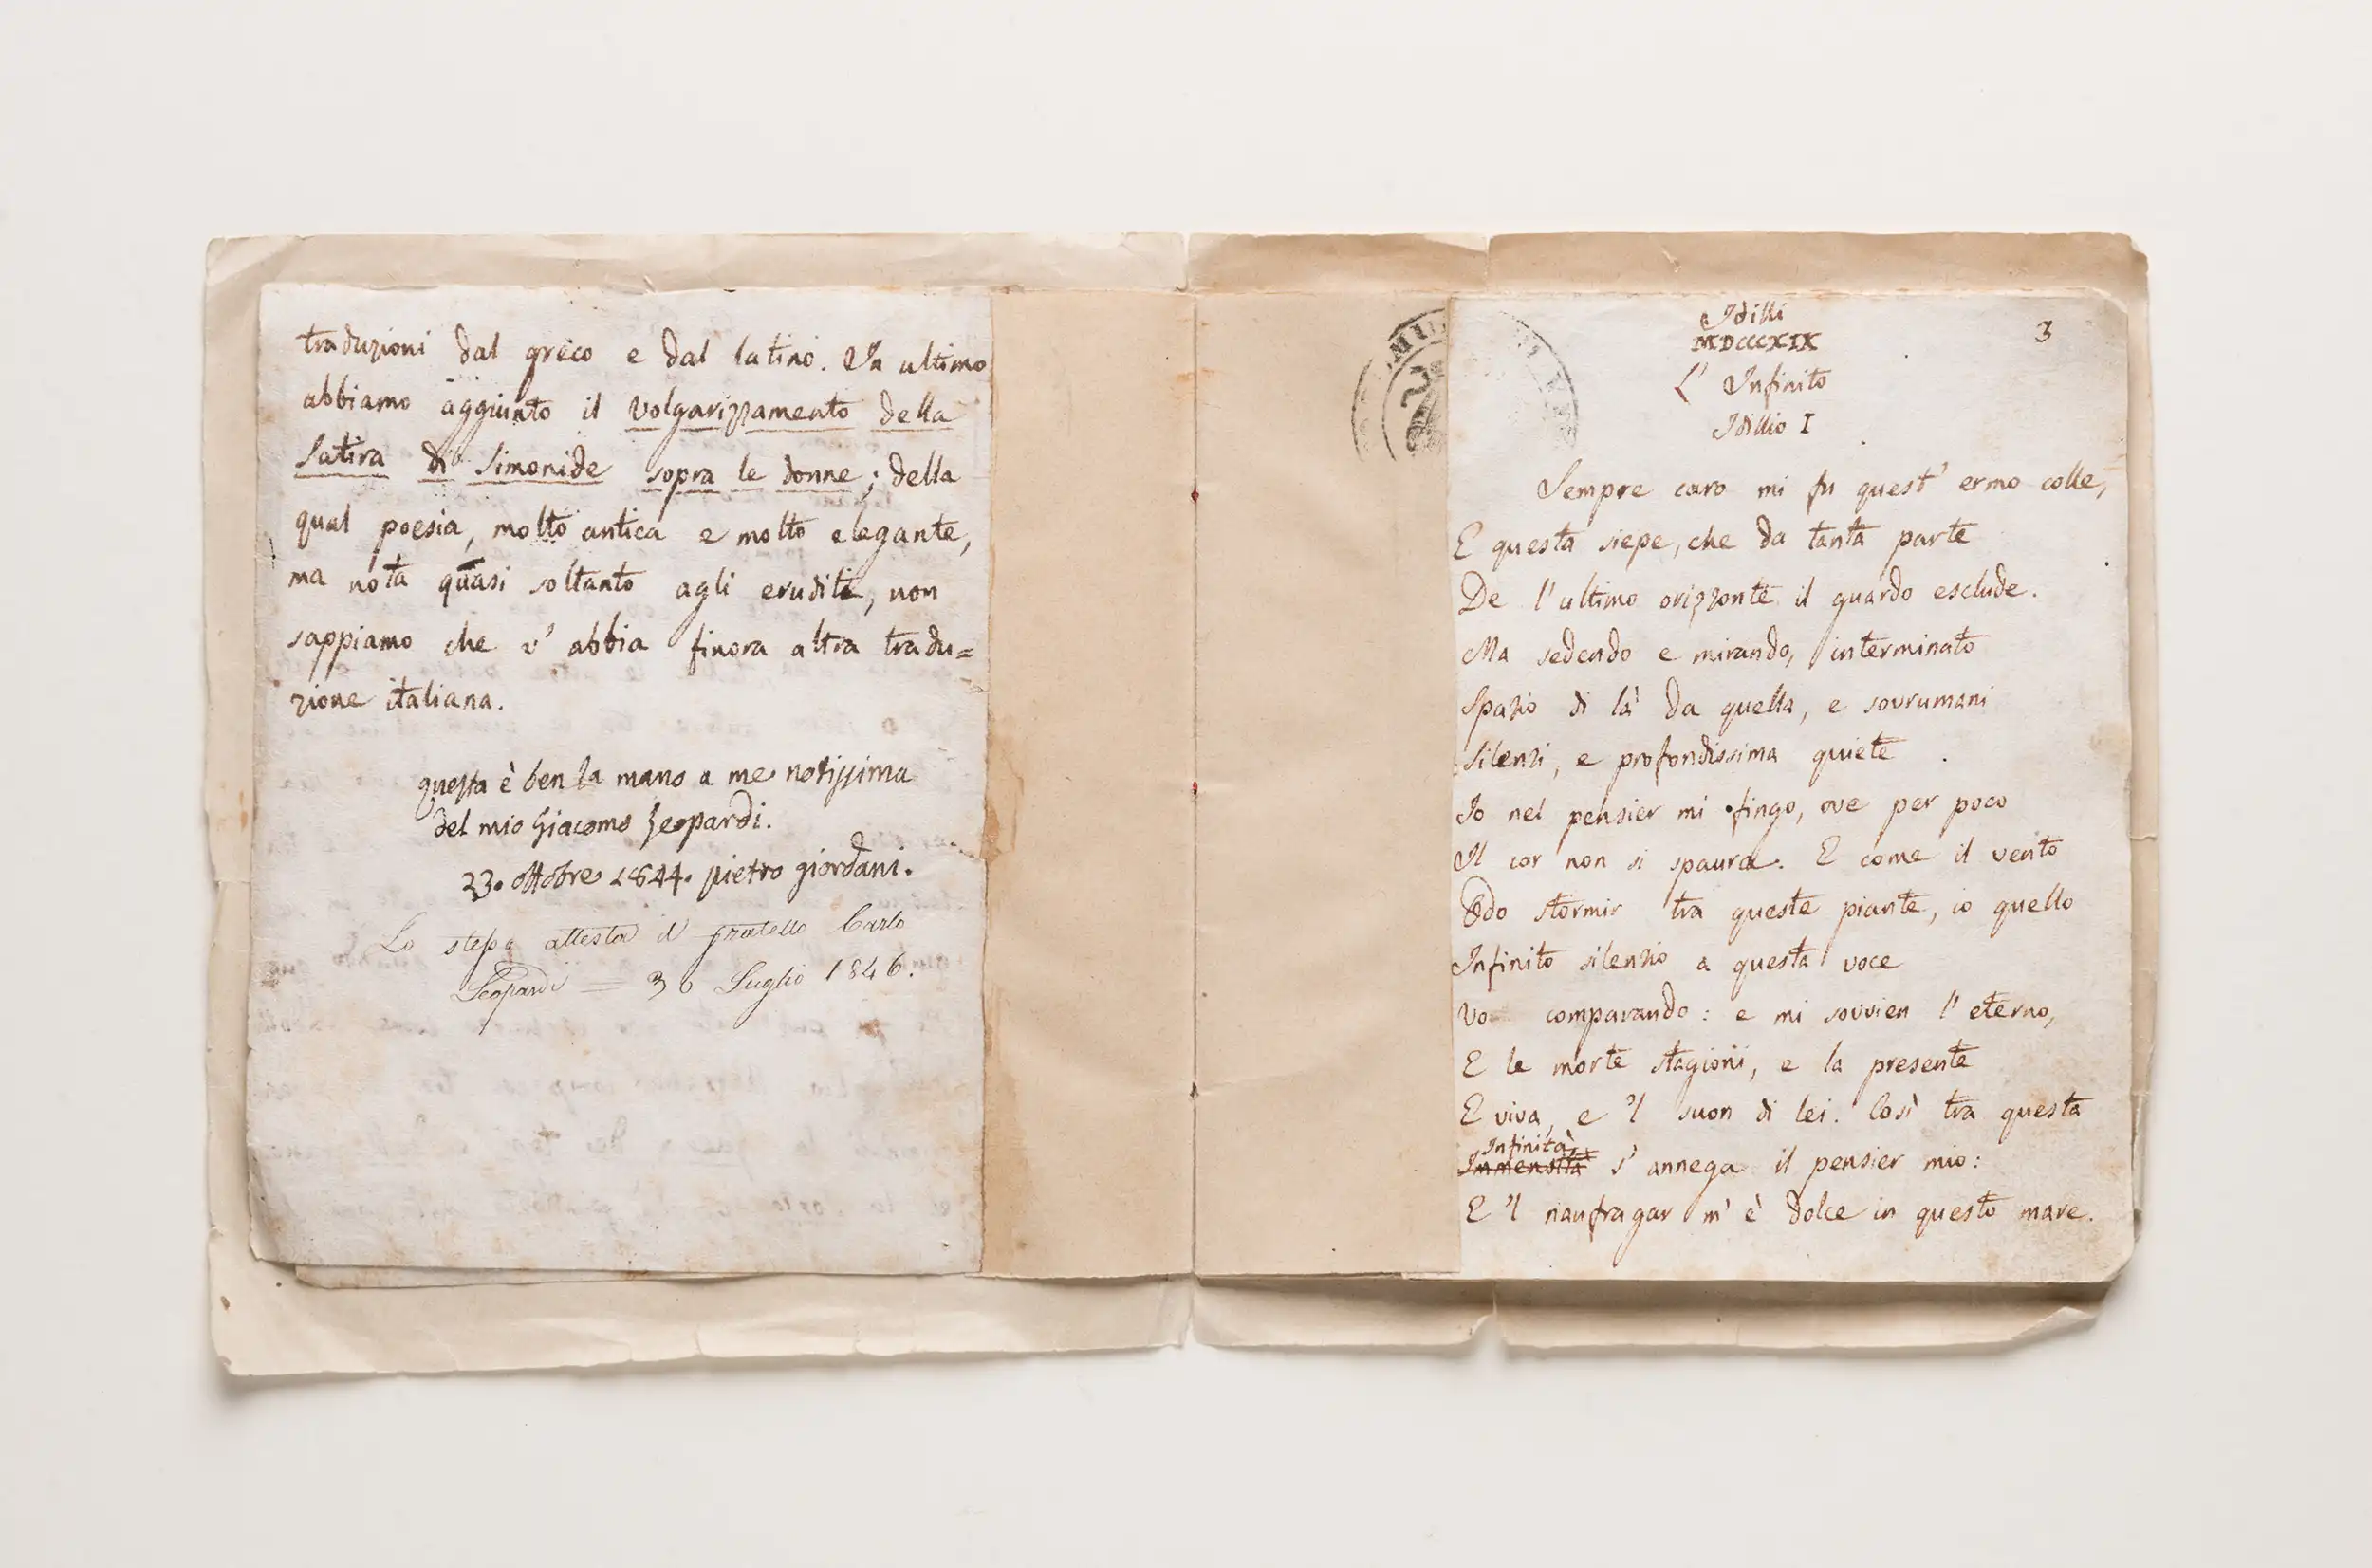 traduzioni dal greco e dal latino. In ultimo
abbiamo aggiunto il volgarizzamento della
Satira di Simonide sopra le donne; della
qual poesia, molto antica e molto elegante,
ma nota quasi soltanto agli eruditi, non
sappiamo che v' abbia finora altra tradu=
zione italiana.
questa è ben la mano a me notissima
del mio Giacomo Leopardi.
23. ottobre 1844. pietro giordani.
Lo stesso attesta il fratello Carlo
Leopardi = 30 Luglio 1846.
3
Idilli
MDCCCXIX
L' Infinito
Idillio I
Sempre caro mi fu quest' ermo colle,
E questa siepe, che da tanta parte
De l'ultimo orizzonte il guardo esclude.
Ma sedendo e mirando, interminato
Spazio di là da quella, e sovrumani
Silenzi, e profondissima quiete
Io nel pensier mi fingo, ove per poco
Il cor non si spaura. E come il vento
Odo stormir tra queste piante, io quello
Infinito silenzio a questa voce
Vo comparando: e mi sovvien l' eterno,
E le morte stagioni, e la presente
E viva, e 'l suon di lei. Così tra questa
Infinità
Immensità s' annega il pensier mio:
E 'l naufragar m' è dolce in questo mare.